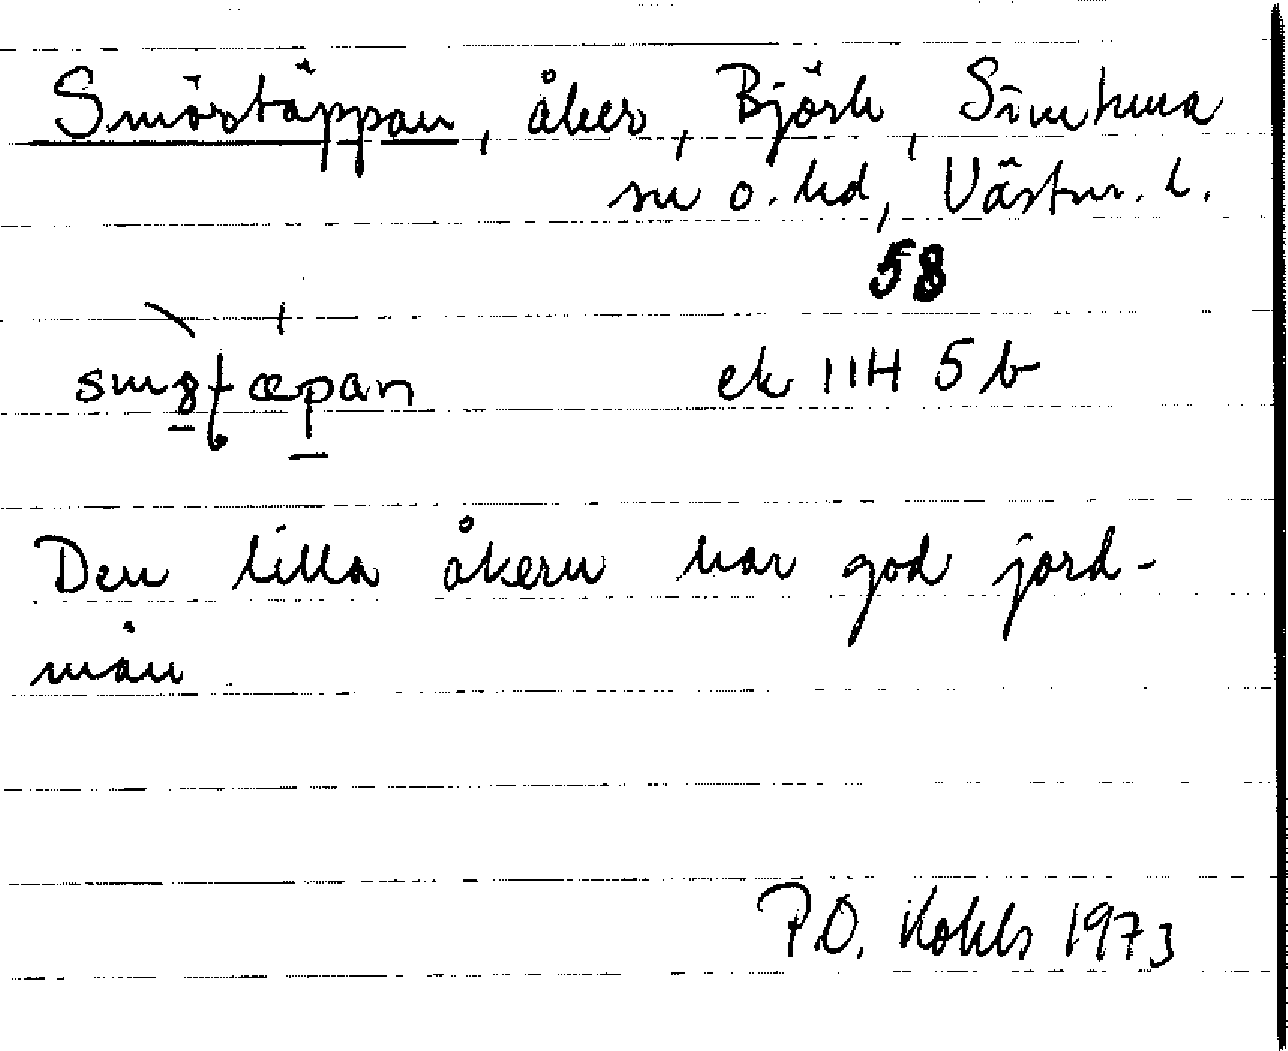 Smörtäppan, åker, Björk, Simtuna
sn o. hd, Västm. l.
58
ek 11H 5 b
Den lilla åkern har god jord-
mån.
P.O. 1973